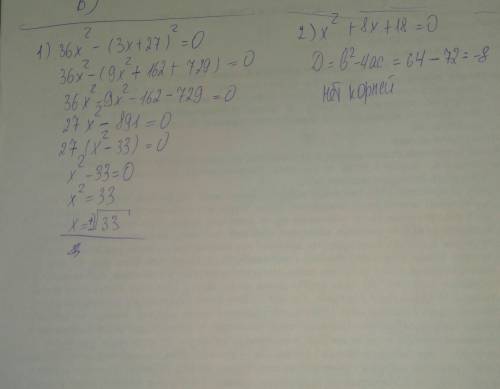 в)
1) 36x² - (3x+27)² = 0
36x² - (9x² + 162 + 729) = 0
36x² - 9x² - 162 - 729 = 0
27x² - 891 = 0
27(x² - 33) = 0
x² - 33 = 0
x² = 33
x = ±√33
2) x² + 8x + 18 = 0
D = b² - 4ac = 64 - 72 = -8
Нет корней